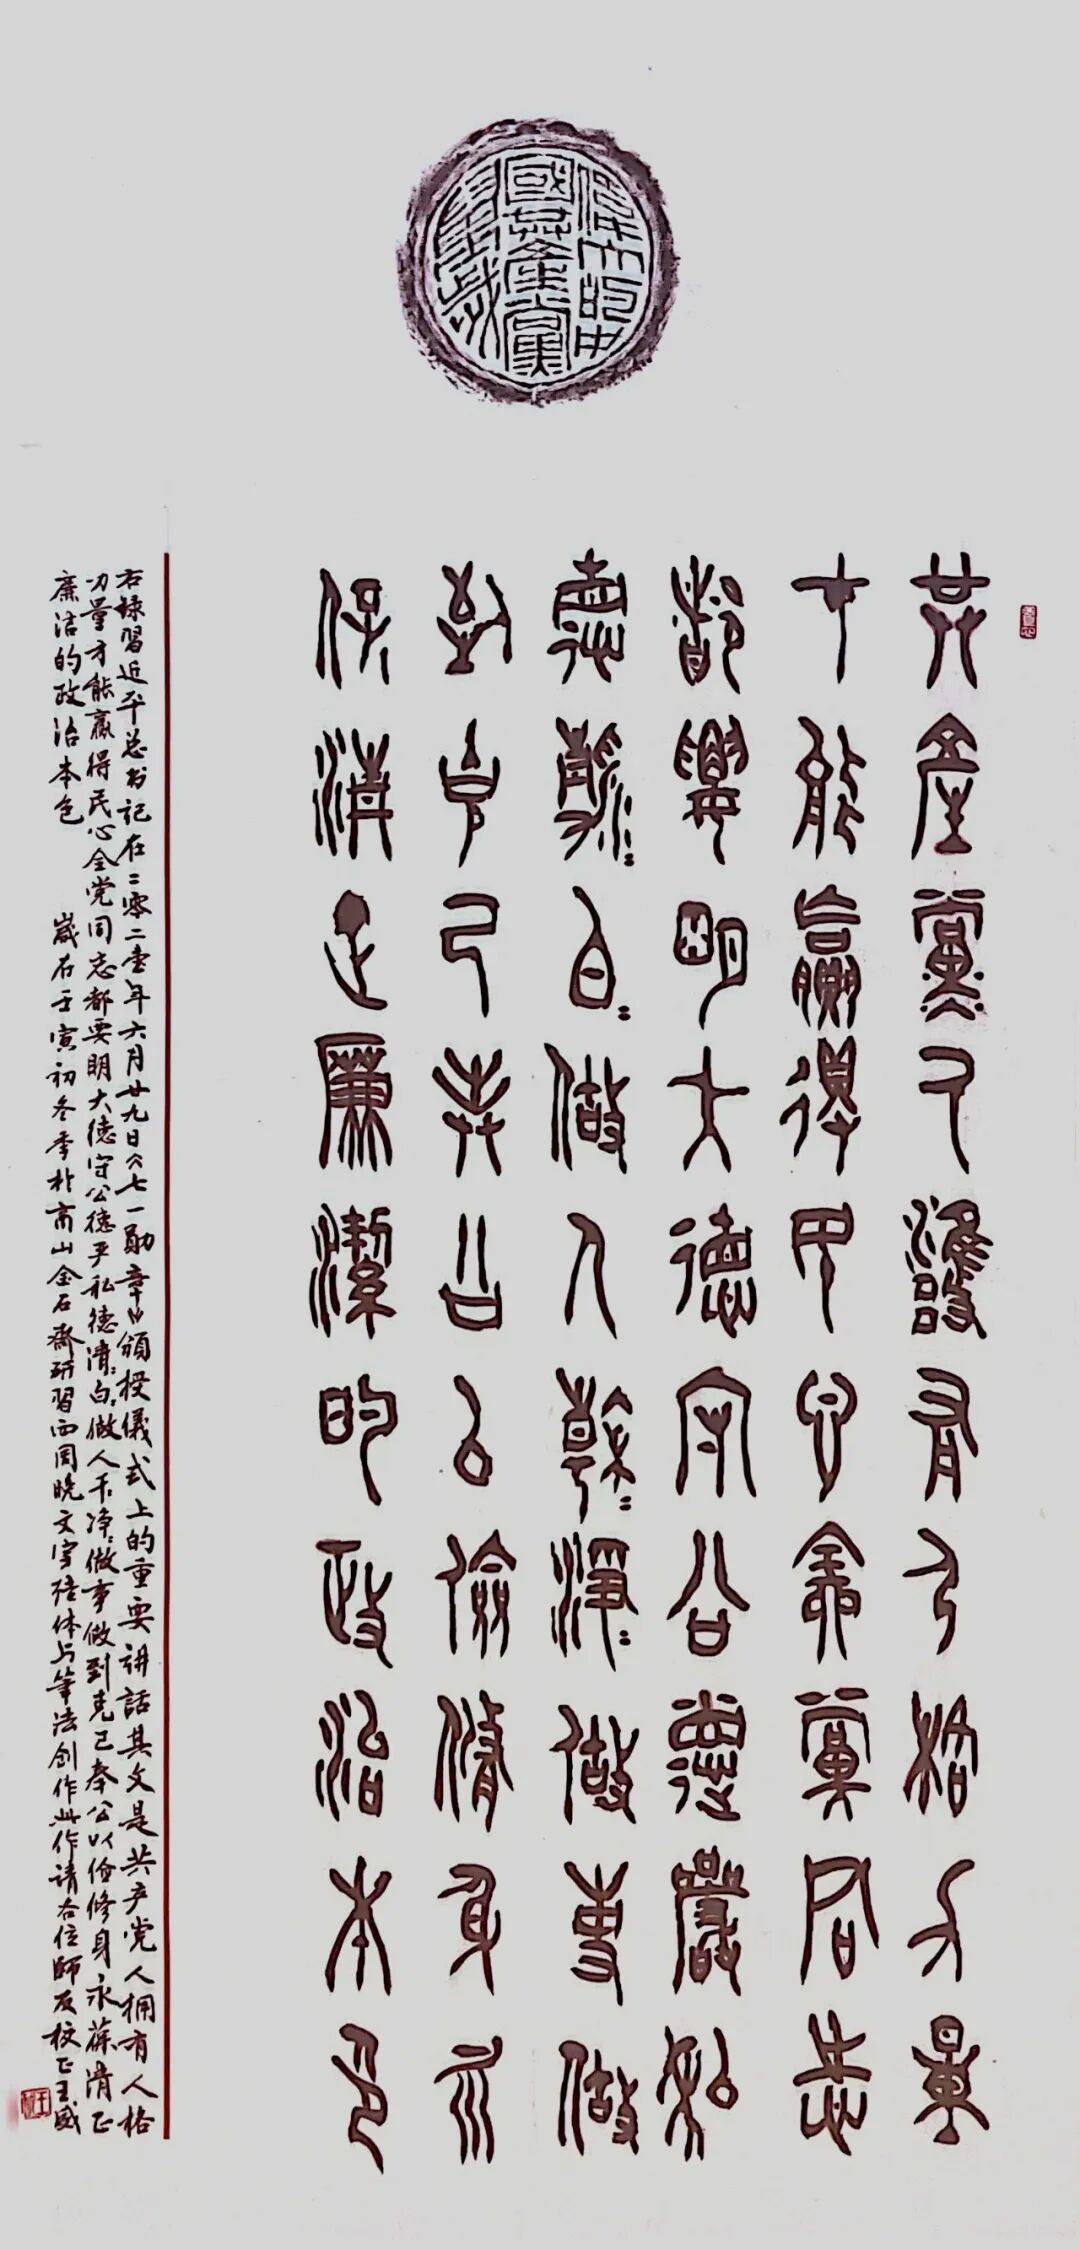 伟大的中
国共产党
万岁
共产党人拥有人格力量
才能赢得民心全党同志
都要明大德守公德严私
德清=白=做人干=净=做事做
到克己奉公以俭修身永
保清正廉洁的政治本色
右录习近平总书记在二零二壹年六月廿九日八七一勋章颁授仪式上的重要讲话其文是共产党人拥有人格
力量才能赢得民心全党同志都要明大德守公德严私德清=白=做人干=净=做事做到克己奉公以俭修身永葆清正
廉洁的政治本色 岁在壬寅初冬季于商山金石斋研习西周晚文字结体与笔法创作此作请各位师友校正王盛